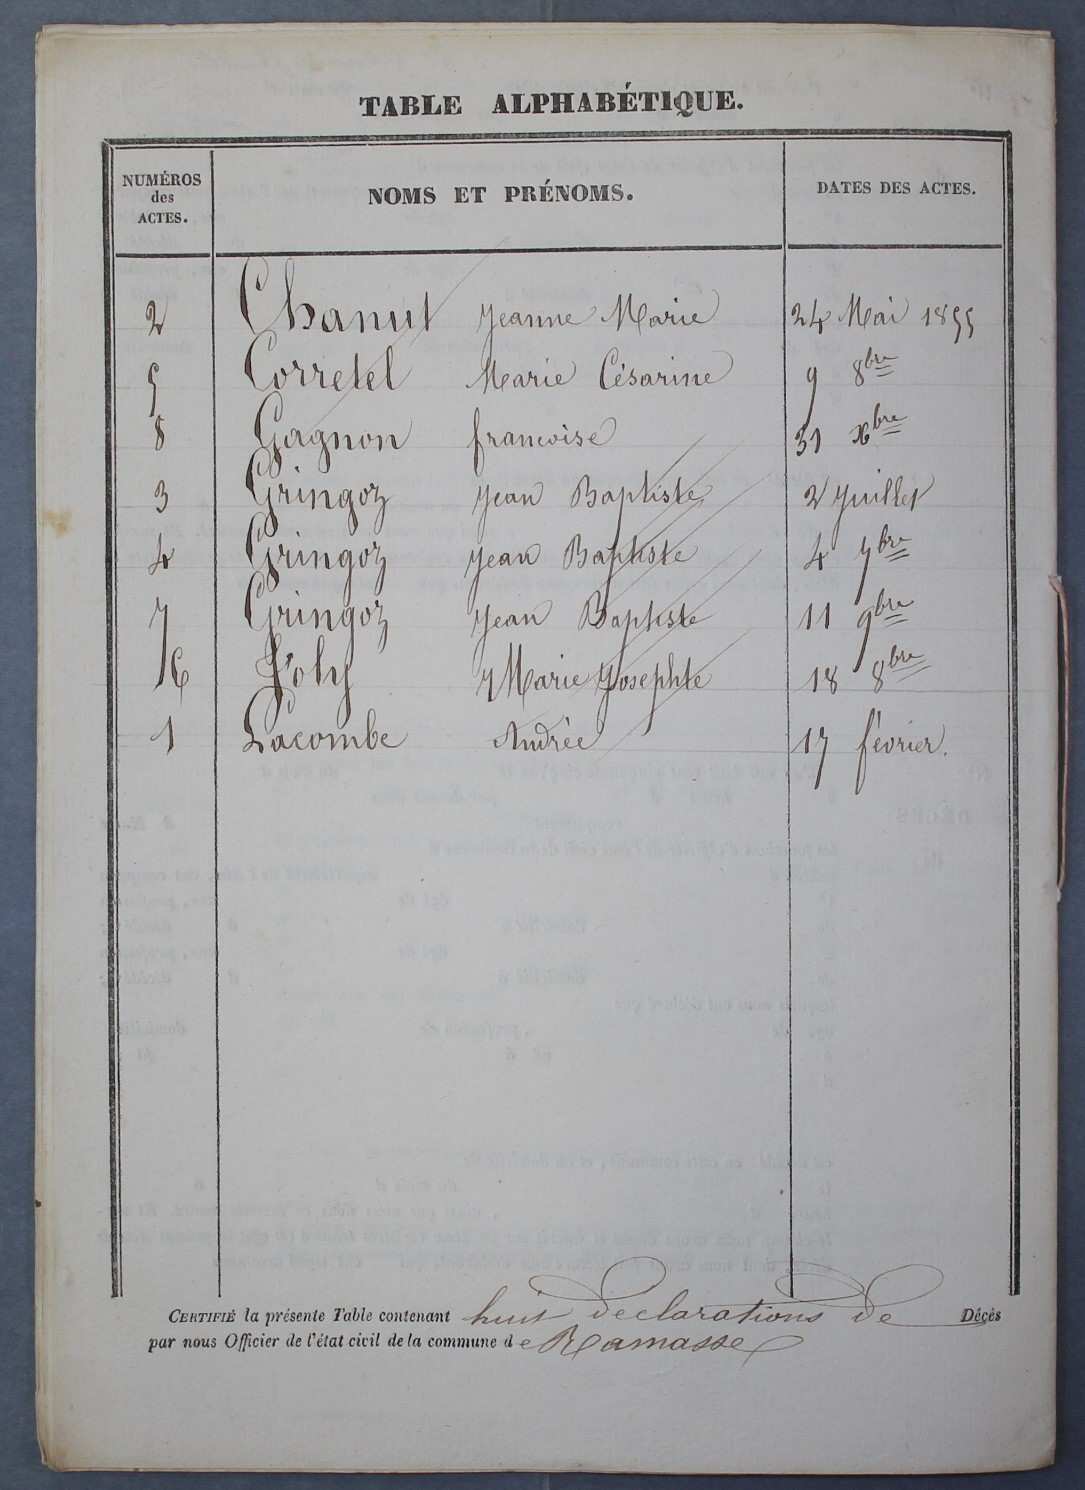 TABLE ALPHABÉTIQUE.
NUMÉROS des ACTES. NOMS ET PRÉNOMS. DATES DES ACTES.
2 Chanut Jeanne Marie 24 Mai 1855
5 Corretel Marie Césarine 9 8bre
8 Gagnon francoise 31 xbre
3 Gringoz Jean Baptiste 2 Juillet
4 Gringoz Jean Baptiste 4 7bre
7 Gringoz Jean Baptiste 11 9bre
6 Joly Marie Josephte 18 8bre
1 Lacombe Andrée 17 février.
CERTIFIÉ la présente Table contenant huit declarations de Décès
par nous Officier de l'état civil de la commune de Ramasse